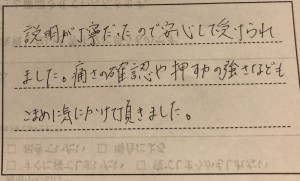 説明が丁寧だったので安心して受けられ
ました。痛さの確認や押す力の強さなども
こまめに気にかけて頂きました。